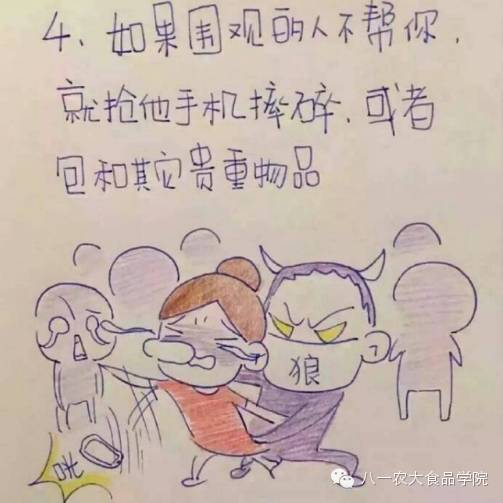 4、如果围观的人不帮你,
就抢他手机摔碎、或者
包和其它贵重物品
狼
咣
八一农大食品学院